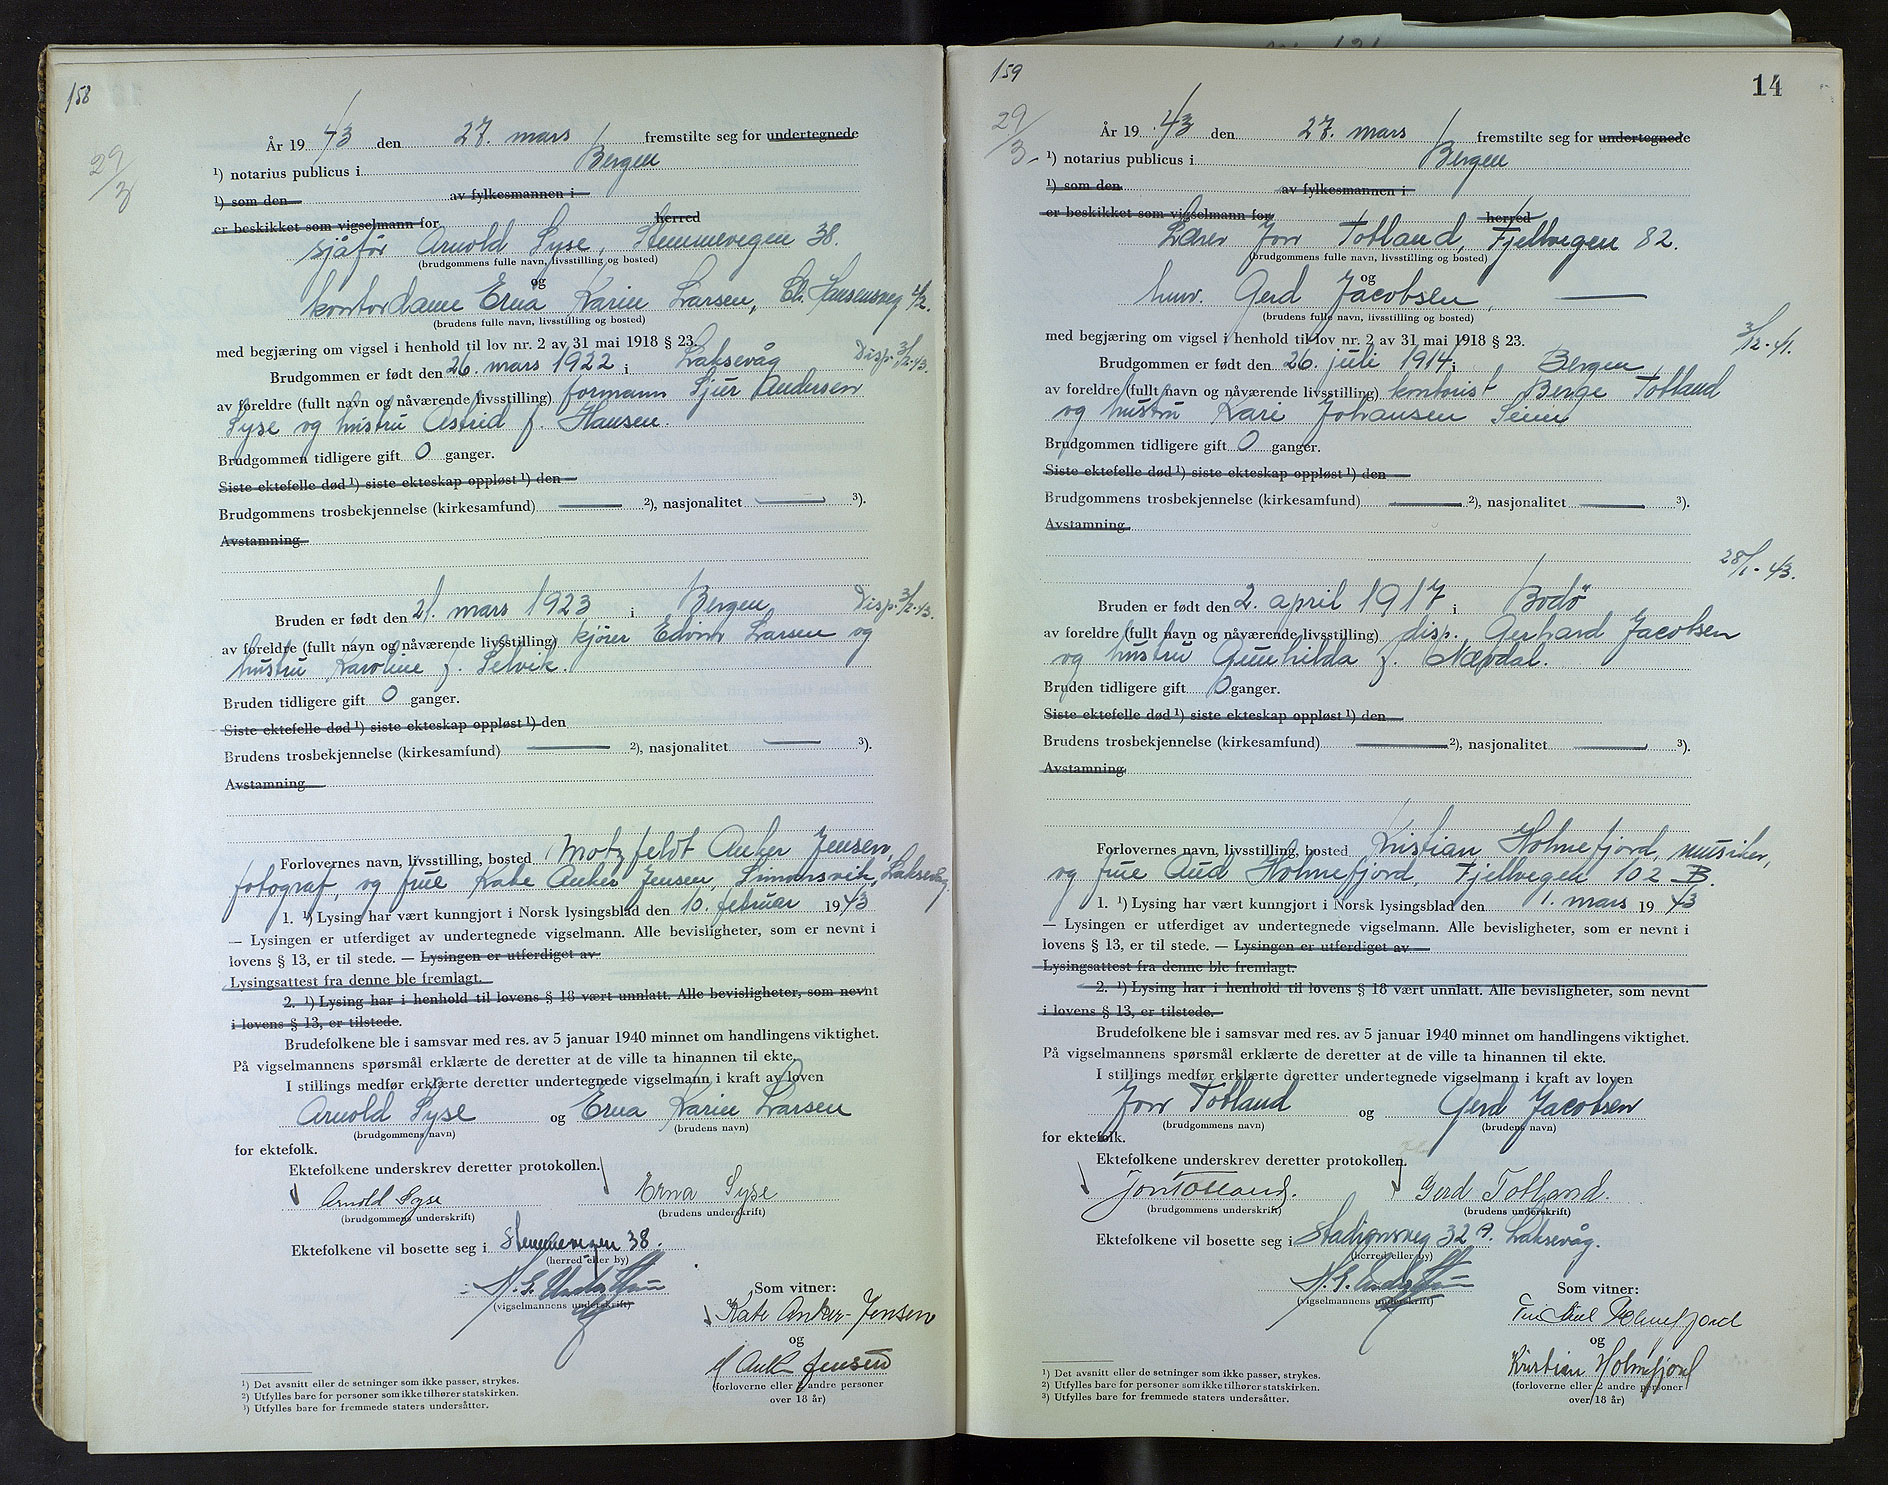 158
29/3
År 1943 den 27. mars fremstilte seg for undertegnede
¹) notarius publicus i Bergen
¹) som den av fylkesmannen i
er beskikket som vigselmann for herred
sjåfør Arnold Syse, Stemmevegen 38.
(brudgommens fulle navn, livsstilling og bosted)
og
kontordame Erna Karin Larsen, Chr. Hansensveg 42.
(brudens fulle navn, livsstilling og bosted)
med begjæring om vigsel i henhold til lov nr. 2 av 31 mai 1918 § 23.
Brudgommen er født den 26. mars 1922 i Laksevåg Disp. 3/2-43.
av foreldre (fullt navn og nåværende livsstilling) formann Sjur Andersen
Syse og hustru Astrid f. Hansen.
Brudgommen tidligere gift 0 ganger.
Siste ektefelle død ¹) siste ekteskap oppløst ¹) den
Brudgommens trosbekjennelse (kirkesamfund) — ²), nasjonalitet — ³).
Avstamning
Bruden er født den 21. mars 1923 i Bergen Disp. 3/2-43.
av foreldre (fullt navn og nåværende livsstilling) kjører Edvin Larsen og
hustru Karoline f. Selvik.
Bruden tidligere gift 0 ganger.
Siste ektefelle død ¹) siste ekteskap oppløst ¹) den
Brudens trosbekjennelse (kirkesamfund) — ²), nasjonalitet — ³).
Avstamning
Forlovernes navn, livsstilling, bosted Motzfeldt Anker Jensen,
fotograf, og frue Kate Anker Jensen, Simonsvik, Laksevåg
1. ¹) Lysing har vært kunngjort i Norsk lysingsblad den 10. februar 1943
— Lysingen er utferdiget av undertegnede vigselmann. Alle bevisligheter, som er nevnt i
lovens § 13, er til stede. — Lysingen er utferdiget av
Lysingsattest fra denne ble fremlagt.
2. ¹) Lysing har i henhold til lovens § 18 vært unnlatt. Alle bevisligheter, som nevnt
i lovens § 13, er tilstede.
Brudefolkene ble i samsvar med res. av 5 januar 1940 minnet om handlingens viktighet.
På vigselmannens spørsmål erklærte de deretter at de ville ta hinannen til ekte.
I stillings medfør erklærte deretter undertegnede vigselmann i kraft av loven
Arnold Syse og Erna Karin Larsen
(brudgommens navn) (brudens navn)
for ektefolk.
Ektefolkene underskrev deretter protokollen.
Arnold Syse Erna Syse
(brudgommens underskrift) (brudens underskrift)
Ektefolkene vil bosette seg i Stemmevegen 38.
(herred eller by)
(vigselmannens underskrift)
Som vitner:
Kate Anker-Jensen
og
M Anker Jensen
(forloverne eller 2 andre personer
over 18 år)
¹) Det avsnitt eller de setninger som ikke passer, strykes.
²) Utfylles bare for personer som ikke tilhører statskirken.
³) Utfylles bare for fremmede staters undersåtter.
159
14
29/3-
År 1943 den 27. mars fremstilte seg for undertegnede
¹) notarius publicus i Bergen
¹) som den av fylkesmannen i
er beskikket som vigselmann for herred
Lærer Jon Totland, Fjellvegen 82.
(brudgommens fulle navn, livsstilling og bosted)
og
husv. Gerd Jacobsen, —
(brudens fulle navn, livsstilling og bosted)
med begjæring om vigsel i henhold til lov nr. 2 av 31 mai 1918 § 23. 3/12-41.
Brudgommen er født den 26. juli 1914 i Bergen
av foreldre (fullt navn og nåværende livsstilling) kontorist Berge Totland
og hustru Kari Johansen Seim
Brudgommen tidligere gift 0 ganger.
Siste ektefelle død ¹) siste ekteskap oppløst ¹) den
Brudgommens trosbekjennelse (kirkesamfund) — ²), nasjonalitet — ³).
Avstamning
28/1-43.
Bruden er født den 2. april 1917 i Bodö
av foreldre (fullt navn og nåværende livsstilling) disp. Gerhard Jacobsen
og hustru Gunhilda f. Nævdal.
Bruden tidligere gift 0 ganger.
Siste ektefelle død ¹) siste ekteskap oppløst ¹) den
Brudens trosbekjennelse (kirkesamfund) — ²), nasjonalitet — ³).
Avstamning
Forlovernes navn, livsstilling, bosted Kristian Holmefjord, musiker,
og frue Aud Holmefjord, Fjellvegen 102 B.
1. ¹) Lysing har vært kunngjort i Norsk lysingsblad den 1. mars 1943
— Lysingen er utferdiget av undertegnede vigselmann. Alle bevisligheter, som er nevnt i
lovens § 13, er til stede. — Lysingen er utferdiget av
Lysingsattest fra denne ble fremlagt.
2. ¹) Lysing har i henhold til lovens § 18 vært unnlatt. Alle bevisligheter, som nevnt
i lovens § 13, er tilstede.
Brudefolkene ble i samsvar med res. av 5 januar 1940 minnet om handlingens viktighet.
På vigselmannens spørsmål erklærte de deretter at de ville ta hinannen til ekte.
I stillings medfør erklærte deretter undertegnede vigselmann i kraft av loven
Jon Totland og Gerd Jacobsen
(brudgommens navn) (brudens navn)
for ektefolk.
Ektefolkene underskrev deretter protokollen.
Jon Totland. Gerd Totland.
(brudgommens underskrift) (brudens underskrift)
Ektefolkene vil bosette seg i Stadionsveg 32 A. Laksevåg.
(herred eller by)
(vigselmannens underskrift)
Som vitner:
Holmefjord
og
Kristian Holmefjord
(forloverne eller 2 andre personer
over 18 år)
¹) Det avsnitt eller de setninger som ikke passer, strykes.
²) Utfylles bare for personer som ikke tilhører statskirken.
³) Utfylles bare for fremmede staters undersåtter.